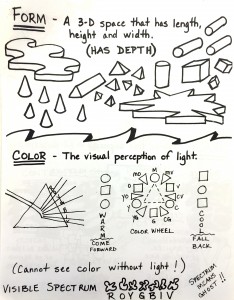 FORM - A 3-D space that has length,
height and width.
(HAS DEPTH)
COLOR - The visual perception of light.
M
MV
MO
V
O
VC
YO
C
Y
CG
YG
G
WARM
COOL
COLOR WHEEL
COME
FORWARD
FALL
BACK
(Cannot see color without light!)
VISIBLE SPECTRUM
R O Y G B I V
SPECTRUM
MEANS
GHOST!!